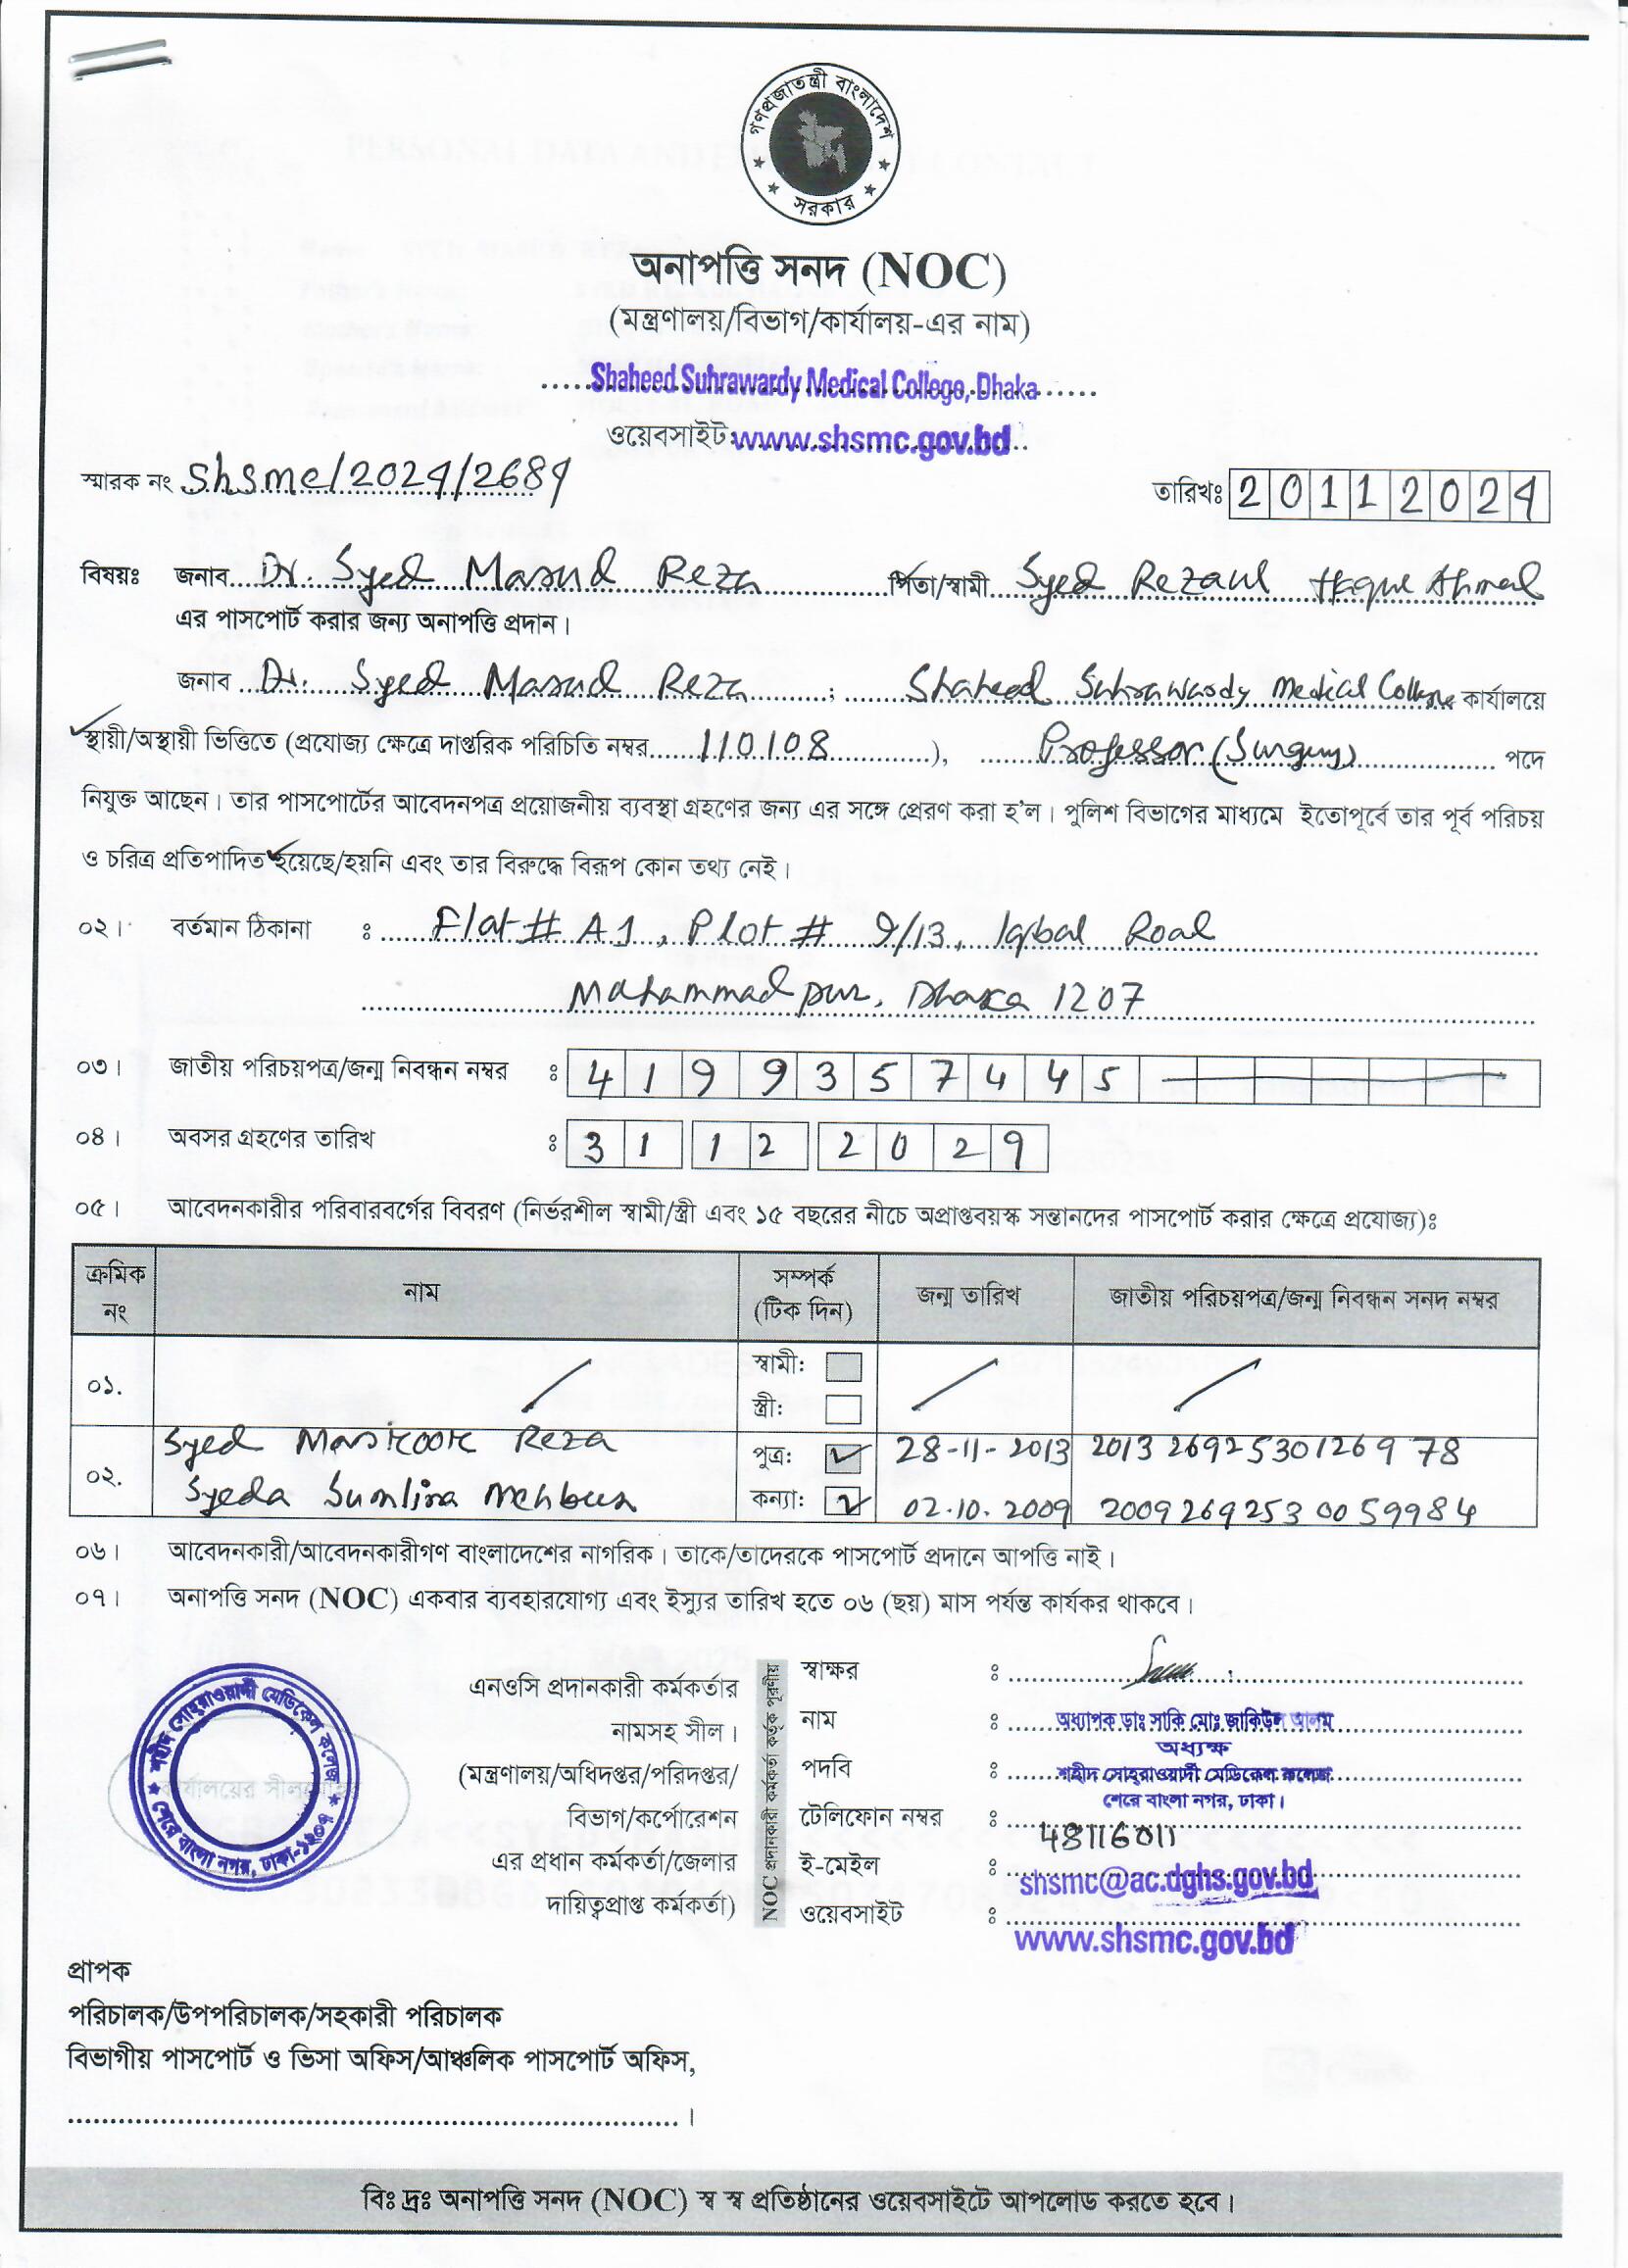 গণপ্রজাতন্ত্রী বাংলাদেশ
সরকার
অনাপত্তি সনদ (NOC)
(মন্ত্রণালয়/বিভাগ/কার্যালয়-এর নাম)
Shaheed Suhrawardy Medical College, Dhaka
ওয়েবসাইট: www.shsmc.gov.bd
স্মারক নং Shsmc/2024/2684 তারিখঃ 20112024
বিষয়ঃ জনাব Dr. Syed Masud Reza পিতা/স্বামী Syed Rezaul Haque Ahmed
এর পাসপোর্ট করার জন্য অনাপত্তি প্রদান।
জনাব Dr. Syed Masud Reza ; Shaheed Suhrawardy Medical College কার্যালয়ে
স্থায়ী/অস্থায়ী ভিত্তিতে (প্রযোজ্য ক্ষেত্রে দাপ্তরিক পরিচিতি নম্বর 110108 ), Professor (Surgery) পদে
নিযুক্ত আছেন। তার পাসপোর্টের আবেদনপত্র প্রয়োজনীয় ব্যবস্থা গ্রহণের জন্য এর সঙ্গে প্রেরণ করা হ'ল। পুলিশ বিভাগের মাধ্যমে ইতোপূর্বে তার পূর্ব পরিচয়
ও চরিত্র প্রতিপাদিত হয়েছে/হয়নি এবং তার বিরুদ্ধে বিরূপ কোন তথ্য নেই।
০২। বর্তমান ঠিকানা ঃ Flat # A1, Plot # 9/13, Iqbal Road
Mohammadpur, Dhaka 1207
০৩। জাতীয় পরিচয়পত্র/জন্ম নিবন্ধন নম্বর ঃ 4199357445
০৪। অবসর গ্রহণের তারিখ ঃ 31 12 2029
০৫। আবেদনকারীর পরিবারবর্গের বিবরণ (নির্ভরশীল স্বামী/স্ত্রী এবং ১৫ বছরের নীচে অপ্রাপ্তবয়স্ক সন্তানদের পাসপোর্ট করার ক্ষেত্রে প্রযোজ্য)ঃ
ক্রমিক নং নাম সম্পর্ক (টিক দিন) জন্ম তারিখ জাতীয় পরিচয়পত্র/জন্ম নিবন্ধন সনদ নম্বর
০১. স্বামী:
স্ত্রী:
Syed Mashkook Reza পুত্র: 28-11-2013 20132692530126978
০২. Syeda Sumlina Mehbub কন্যা: 02.10.2009 20092692530059984
০৬। আবেদনকারী/আবেদনকারীগণ বাংলাদেশের নাগরিক। তাকে/তাদেরকে পাসপোর্ট প্রদানে আপত্তি নাই।
০৭। অনাপত্তি সনদ (NOC) একবার ব্যবহারযোগ্য এবং ইস্যুর তারিখ হতে ০৬ (ছয়) মাস পর্যন্ত কার্যকর থাকবে।
শহীদ সোহরাওয়ার্দী মেডিকেল কলেজ
শেরে বাংলা নগর, ঢাকা-১২০৭
এনওসি প্রদানকারী কর্মকর্তার
নামসহ সীল।
(মন্ত্রণালয়/অধিদপ্তর/পরিদপ্তর/
বিভাগ/কর্পোরেশন
এর প্রধান কর্মকর্তা/জেলার
দায়িত্বপ্রাপ্ত কর্মকর্তা)
NOC প্রদানকারী কর্মকর্তা কর্তৃক পূরণীয়
স্বাক্ষর ঃ
নাম ঃ অধ্যাপক ডাঃ সাকি মোঃ জাকিউল আলম
অধ্যক্ষ
পদবি ঃ শহীদ সোহরাওয়ার্দী মেডিকেল কলেজ
শেরে বাংলা নগর, ঢাকা।
টেলিফোন নম্বর ঃ 48116011
ই-মেইল ঃ shsmc@ac.dghs.gov.bd
ওয়েবসাইট ঃ www.shsmc.gov.bd
প্রাপক
পরিচালক/উপপরিচালক/সহকারী পরিচালক
বিভাগীয় পাসপোর্ট ও ভিসা অফিস/আঞ্চলিক পাসপোর্ট অফিস,
বিঃ দ্রঃ অনাপত্তি সনদ (NOC) স্ব স্ব প্রতিষ্ঠানের ওয়েবসাইটে আপলোড করতে হবে।